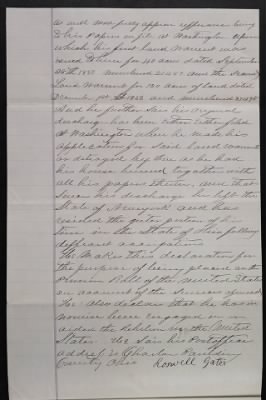 as will more fully appear reference being
to his Papers on file at Washington upon
which his first Land Warrant was
issued to him for 40 acres dated September
26th 1851 numbered and the second
Land Warrant for 120 acres of land dated
and numbered
And he further says his original
discharge has been either filed
at Washington when he made his
application for said land warrant
or destroyed by fire as he had
his house burned together with
all his papers therein, and that
since his discharge he left the
State of and has
resided the greater portion of his
time in the State of Ohio following
different occupations
He Makes this declaration for
the purpose of being placed on the
Pension Roll of the United States
on account of the services aforesaid
He also declares that he has in
nowise been engaged in or
aided the Rebellion in the United
States. He says his Post office
address is Charloe Paulding
County Ohio Roswell Gates